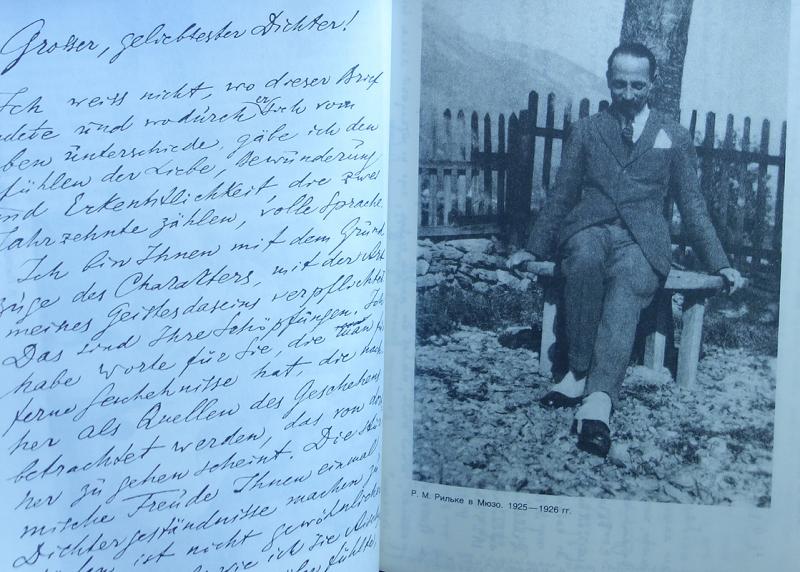 Grosser, geliebtester Dichter!
Ich weiss nicht, wo dieser Brief
ndete und wodurch er sich vom
ben unterschiede, gäbe ich den
fühlen der Liebe, Bewunderung
und Erkentlichkeit, die zwei
Jahrzehnte zählen, volle Sprache.
Ich bin Ihnen mit dem Grund
züge des Charakters, mit der Art
meines Geistesdaseins verpflichtet.
Das sind Ihre Schöpfungen. Ich
habe worte für Sie, die man für
ferne Geschehnisse hat, die nach
her als Quellen des Geschehens
betrachtet werden, das von da
her zu gehen scheint. Die stür
mische Freude Ihnen einmal
Dichtergeständnisse machen zu
ist nicht gewöhnlich
wie ich sie
fühlte,
Р. М. Рильке в Мюзо. 1925—1926 гг.